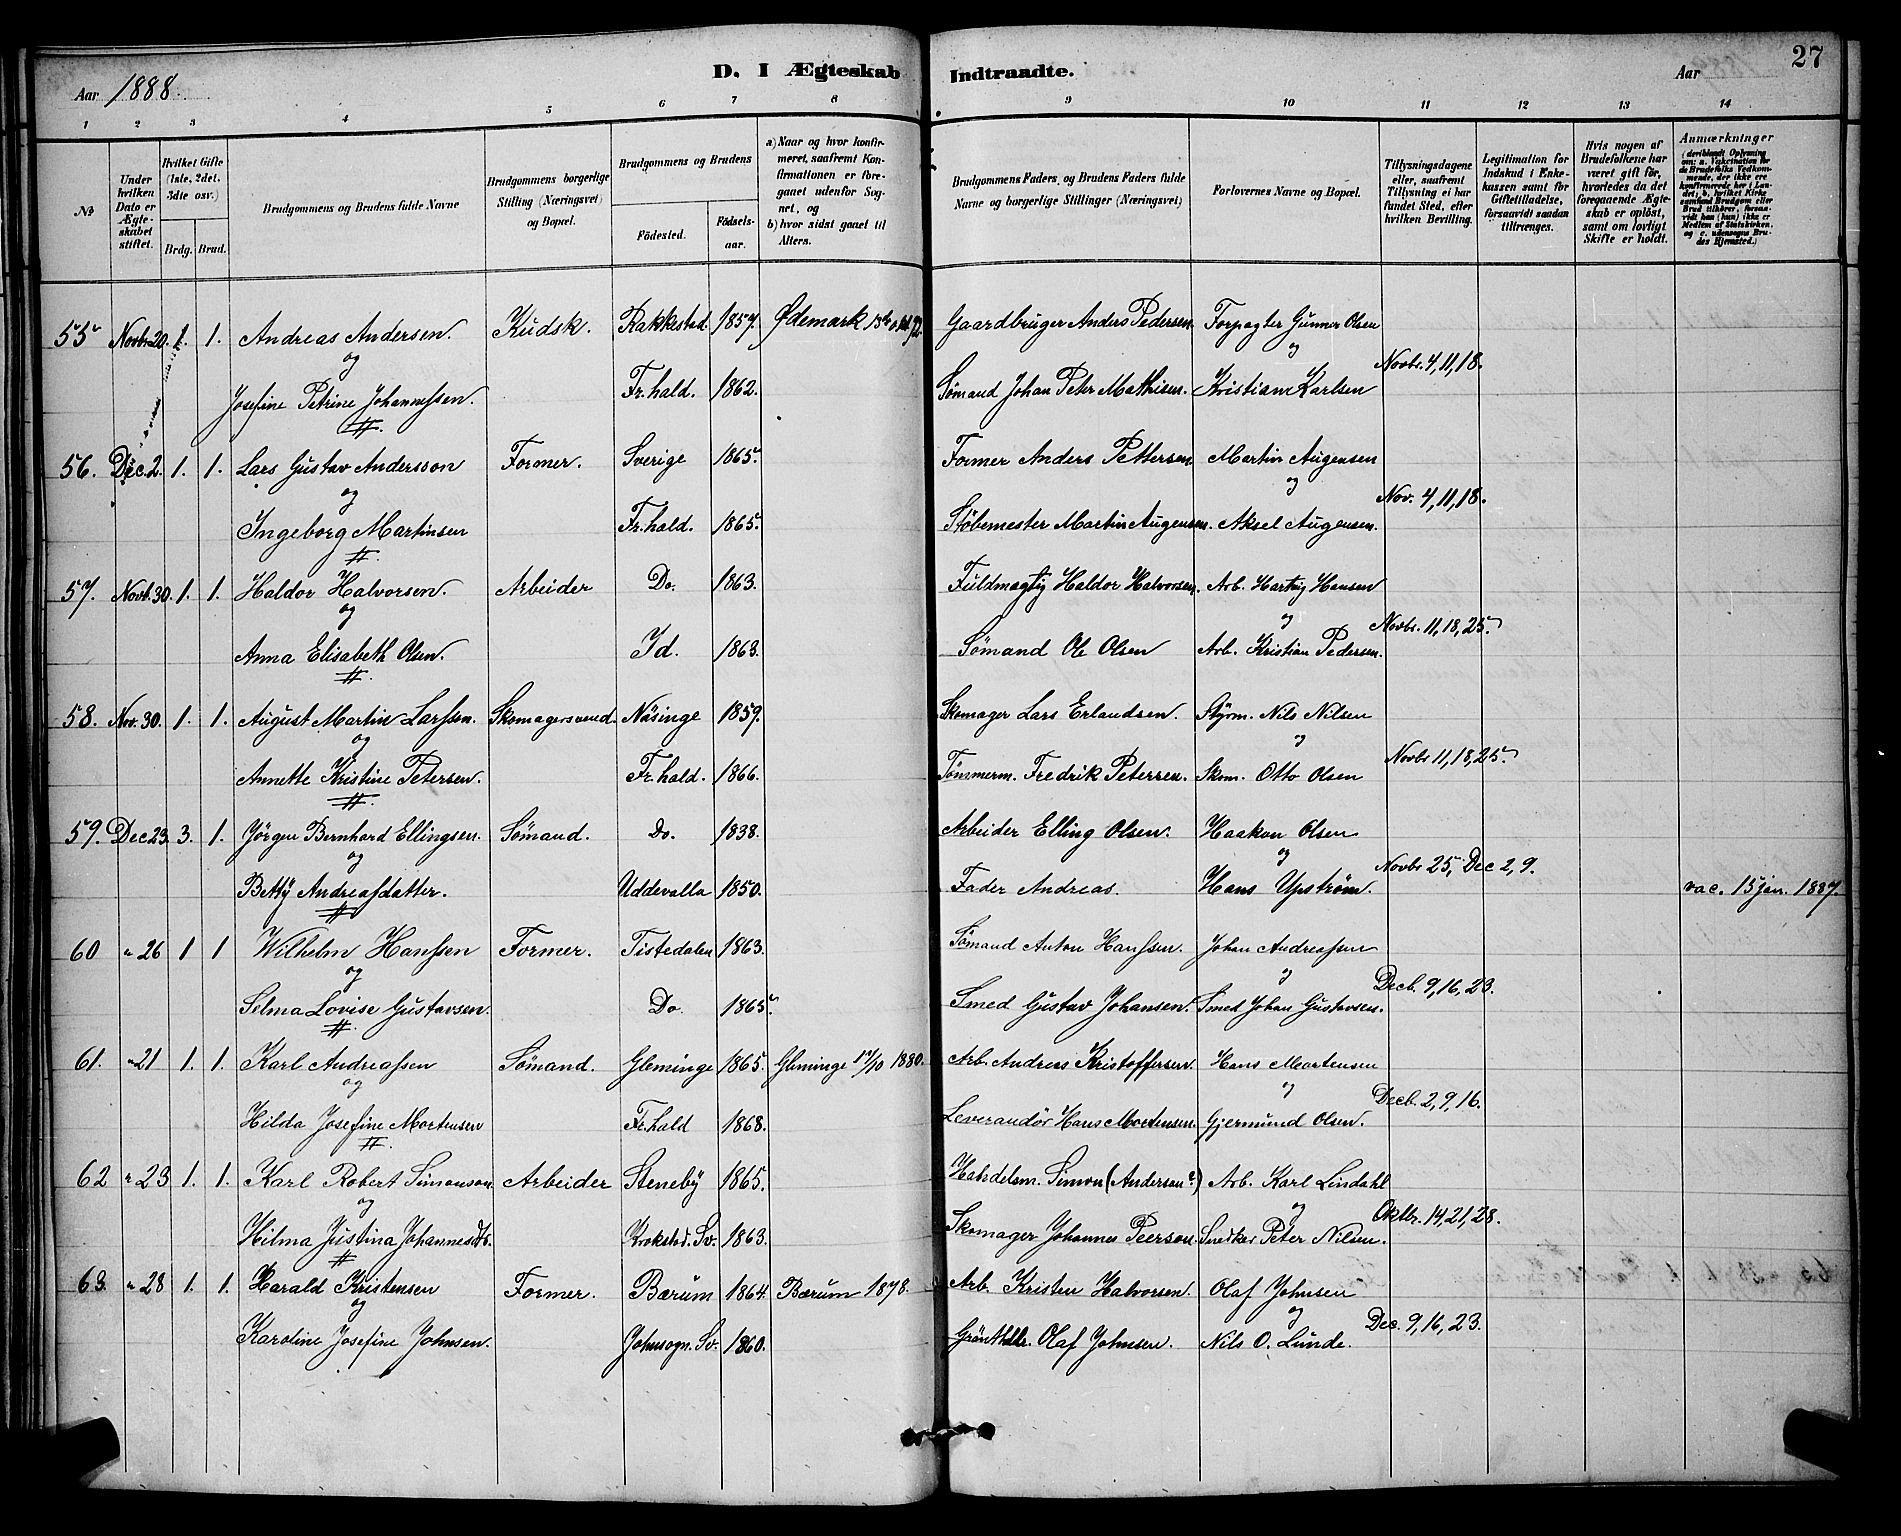 D. I Ægteskab Indtraadte.
27
Aar 1888.
Aar
1 2 3 4 5 6 7 8 9 10 11 12 13 14
№
Under hvilken Dato er Ægteskabet stiftet.
Hvilket Gifte (1ste, 2det, 3die osv.)
Brdg. Brud.
Brudgommens og Brudens fulde Navne
Brudgommens borgerlige Stilling (Næringsvei) og Bopæl.
Brudgommens og Brudens
Fødested.
Fødselsaar.
a) Naar og hvor konfirmeret, saafremt Konfirmationen er foregaaet udenfor Sognet, og
b) hvor sidst gaaet til Alters.
Brudgommens Faders og Brudens Faders fulde Navne og borgerlige Stillinger (Næringsvei)
Forlovernes Navne og Bopæl.
Tillysningsdagene eller, saafremt Tillysning ei har fundet Sted, efter hvilken Bevilling.
Legitimation for Indskud i Enkekassen samt for Giftetilladelse, forsaavidt saadan tiltrænges.
Hvis nogen af Brudefolkene har været gift før, hvorledes da det foregaaende Ægteskab er opløst, samt om lovligt Skifte er holdt.
Anmærkninger
(deriblandt Oplysning om: a. Vakcination for de Brudefolks Vedkommende, der ikke er konfirmerede her i Landet; b. hvilket Kirkesamfund Brudgom eller Brud tilhører, forsaavidt han (hun) ikke er Medlem af Statskirken, og c. udensogns Brudes Hjemsted.)
55 Novbr. 20. 1. 1. Andreas Andersen. Kudsk. Rakkestad. 1857. Ødemark Gaardbruger Anders Pedersen. Forpagter Gunnar Olsen
og og Novbr. 4, 11, 18.
Josefine Petrine Johannessen. Fr.hald. 1862. Sømand Johan Peter Mathisen. Kristian Karlsen
56. Dec. 2. 1. 1. Lars Gustav Andersson Former. Sverige 1865. Former Anders Pettersen Martin Augensen
og og Nov. 4, 11, 18.
Ingeborg Martinsen Fr.hald. 1865. Støbemester Martin Augensen. Aksel Augensen.
57. Novb. 30. 1. 1. Haldor Halvorsen. Arbeider Do. 1863. Fuldmægtig Haldor Halvorsen. Arb. Hartvig Hansen
og og Novbr. 11, 18, 25.
Anna Elisabeth Olsen. Id. 1863. Sømand Ole Olsen Arb. Kristian Pedersen.
58. Nov. 30. 1. 1. August Martin Larssen. Skomagersvend. Näsinge 1859. Skomager Lars Erlandsen. Styrm. Nils Nilsen
og og Novbr 11, 18, 25.
Annette Kristine Petersen. Fr.hald. 1866. Tømmerm. Fredrik Petersen. Skom. Otto Olsen
59. Dec 23. 3. 1. Jörgen Bernhard Ellingsen. Sømand. Do. 1838. Arbeider Elling Olsen. Haakon Olsen
og og Novbr 25, Dec 2, 9.
Betty Andreasdatter. Uddevalla 1850. Fader Andreas. Hans Ypström. vac. 15 jan. 1887.
60 " 26 1 1 Wilhelm Hanssen Former. Tistedalen 1863. Sømand Anton Hanssen. Johan Andreassen
og og Decb. 9, 16, 23.
Selma Lovise Gustavsen. Do. 1865. Smed Gustav Johansen. Smed Johan Gustavsen.
61. " 21 1. 1. Karl Andreassen Sømand. Gleminge 1865. Gleminge 17/10 1880. Arb. Andreas Kristoffersen. Hans Martensen
og og Decb. 2, 9, 16.
Hilda Josefine Mortensen Fr.hald 1868. Leverandör Hans Mortensen. Gjermund Olsen.
62 " 23 1. 1. Karl Robert Simonson Arbeider Steneby 1865. Handelsm. Simon (Anderson?) Arb. Karl Lindahl
og og Oktbr. 14, 21, 28.
Hilma Justina Johannesdtr. Krokstad. Sv. 1863. Skomager Johannes Peerson. Snedker Peter Nilsen.
63. " 28 1. 1. Harald Kristensen Former. Bærum 1864. Bærum 1878. Arb. Kristen Halvorsen. Olaf Johnsen
og og Dec. 9, 16, 23.
Karoline Josefine Johnsen. Johnsogn. Sv. 1860. Grönthdlr. Olaf Johnsen. Nils O. Lunde.